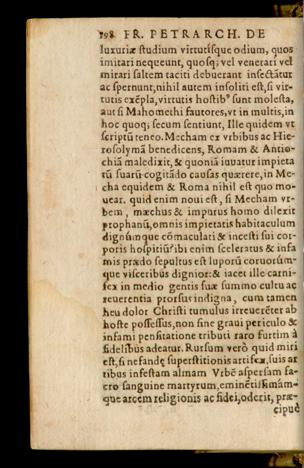 198 FR. PETRARCH. DE
luxuriæ studium virtutisque odium, quos
imitari nequeunt, quosq; vel venerari vel
mirari saltem taciti debuerant insectātur
ac spernunt, nihil autem insoliti est, si vir-
tutis exēpla, virtutis hostibꝰ sunt molesta,
aut si Mahomethi fautores, vt in multis, in
hoc quoq; secum sentiunt, Ille quidem vt
scriptū teneo. Mecham ex vrbibus ac Hie-
rosolymā benedicens, Romam & Antio-
chiā maledixit, & quoniā iuuatur impieta
tū suarū cogitādo causas quærere, in Me-
cha equidem & Roma nihil est quo mo-
uear. quid enim noui est, si Mecham vr-
bem, mœchus & impurus homo dilexit
prophanū, omnis impietatis habitaculum
dignumque cōmaculati & incesti sui cor-
poris hospitiū? ibi enim sceleratus & infa
mis prædo sepultus est luporū coruorum-
que visceribus dignior: & iacet ille carni-
fex in medio gentis suæ summo cultu ac
reuerentia prorsus indigna, cum tamen
heu dolor Christi tumulus irreuerēter ab
hoste possessus, non sine graui periculo &
infami pensitatione tributi raro furtim à
fidelibus adeatur. Rursum verò quid miri
est, si nefandę superstitionis artifex, suis ar
tibus infestam almam Vrbē aspersam sa-
cro sanguine martyrum, eminētissimam-
que arcem religionis ac fidei, oderit, præ-
cipuè